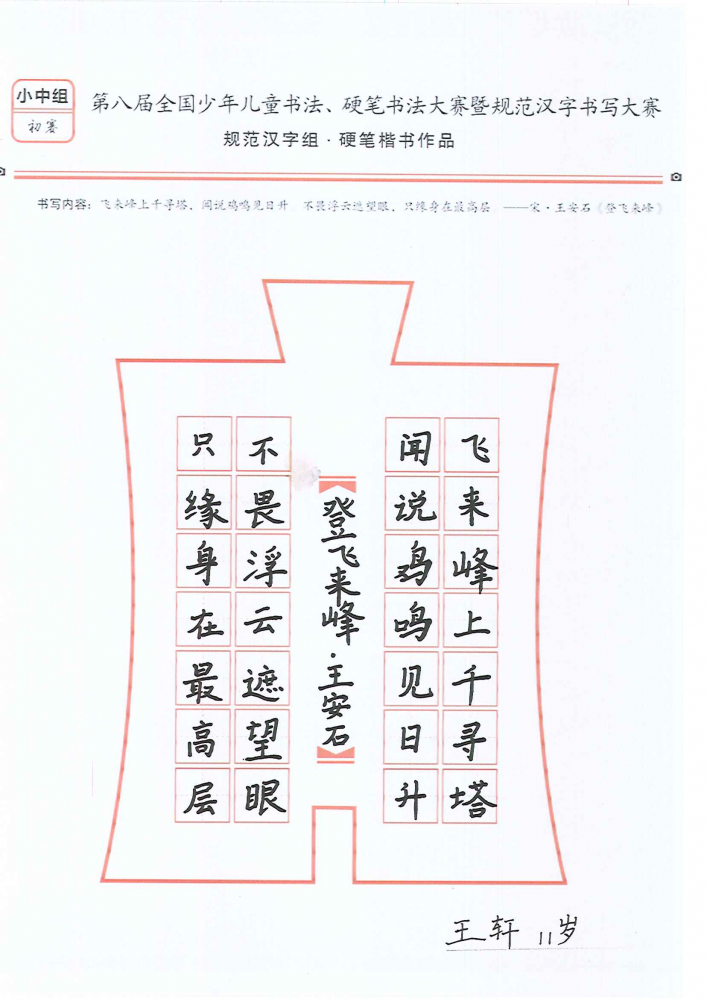 小中组
初赛
第八届全国少年儿童书法、硬笔书法大赛暨规范汉字书写大赛
规范汉字组·硬笔楷书作品
书写内容：飞来峰上千寻塔，闻说鸡鸣见日升。不畏浮云遮望眼，只缘身在最高层。——宋·王安石《登飞来峰》
飞来峰上千寻塔
闻说鸡鸣见日升
登飞来峰·王安石
不畏浮云遮望眼
只缘身在最高层
王轩 11岁